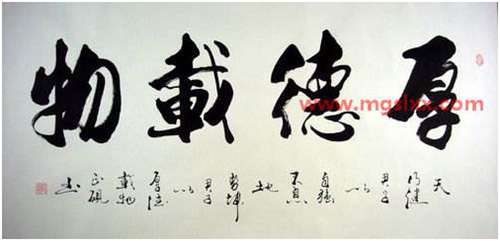 厚德載物
www.mgslxx.com
天行健君子以自强不息地势坤君子以厚德載物正砚书